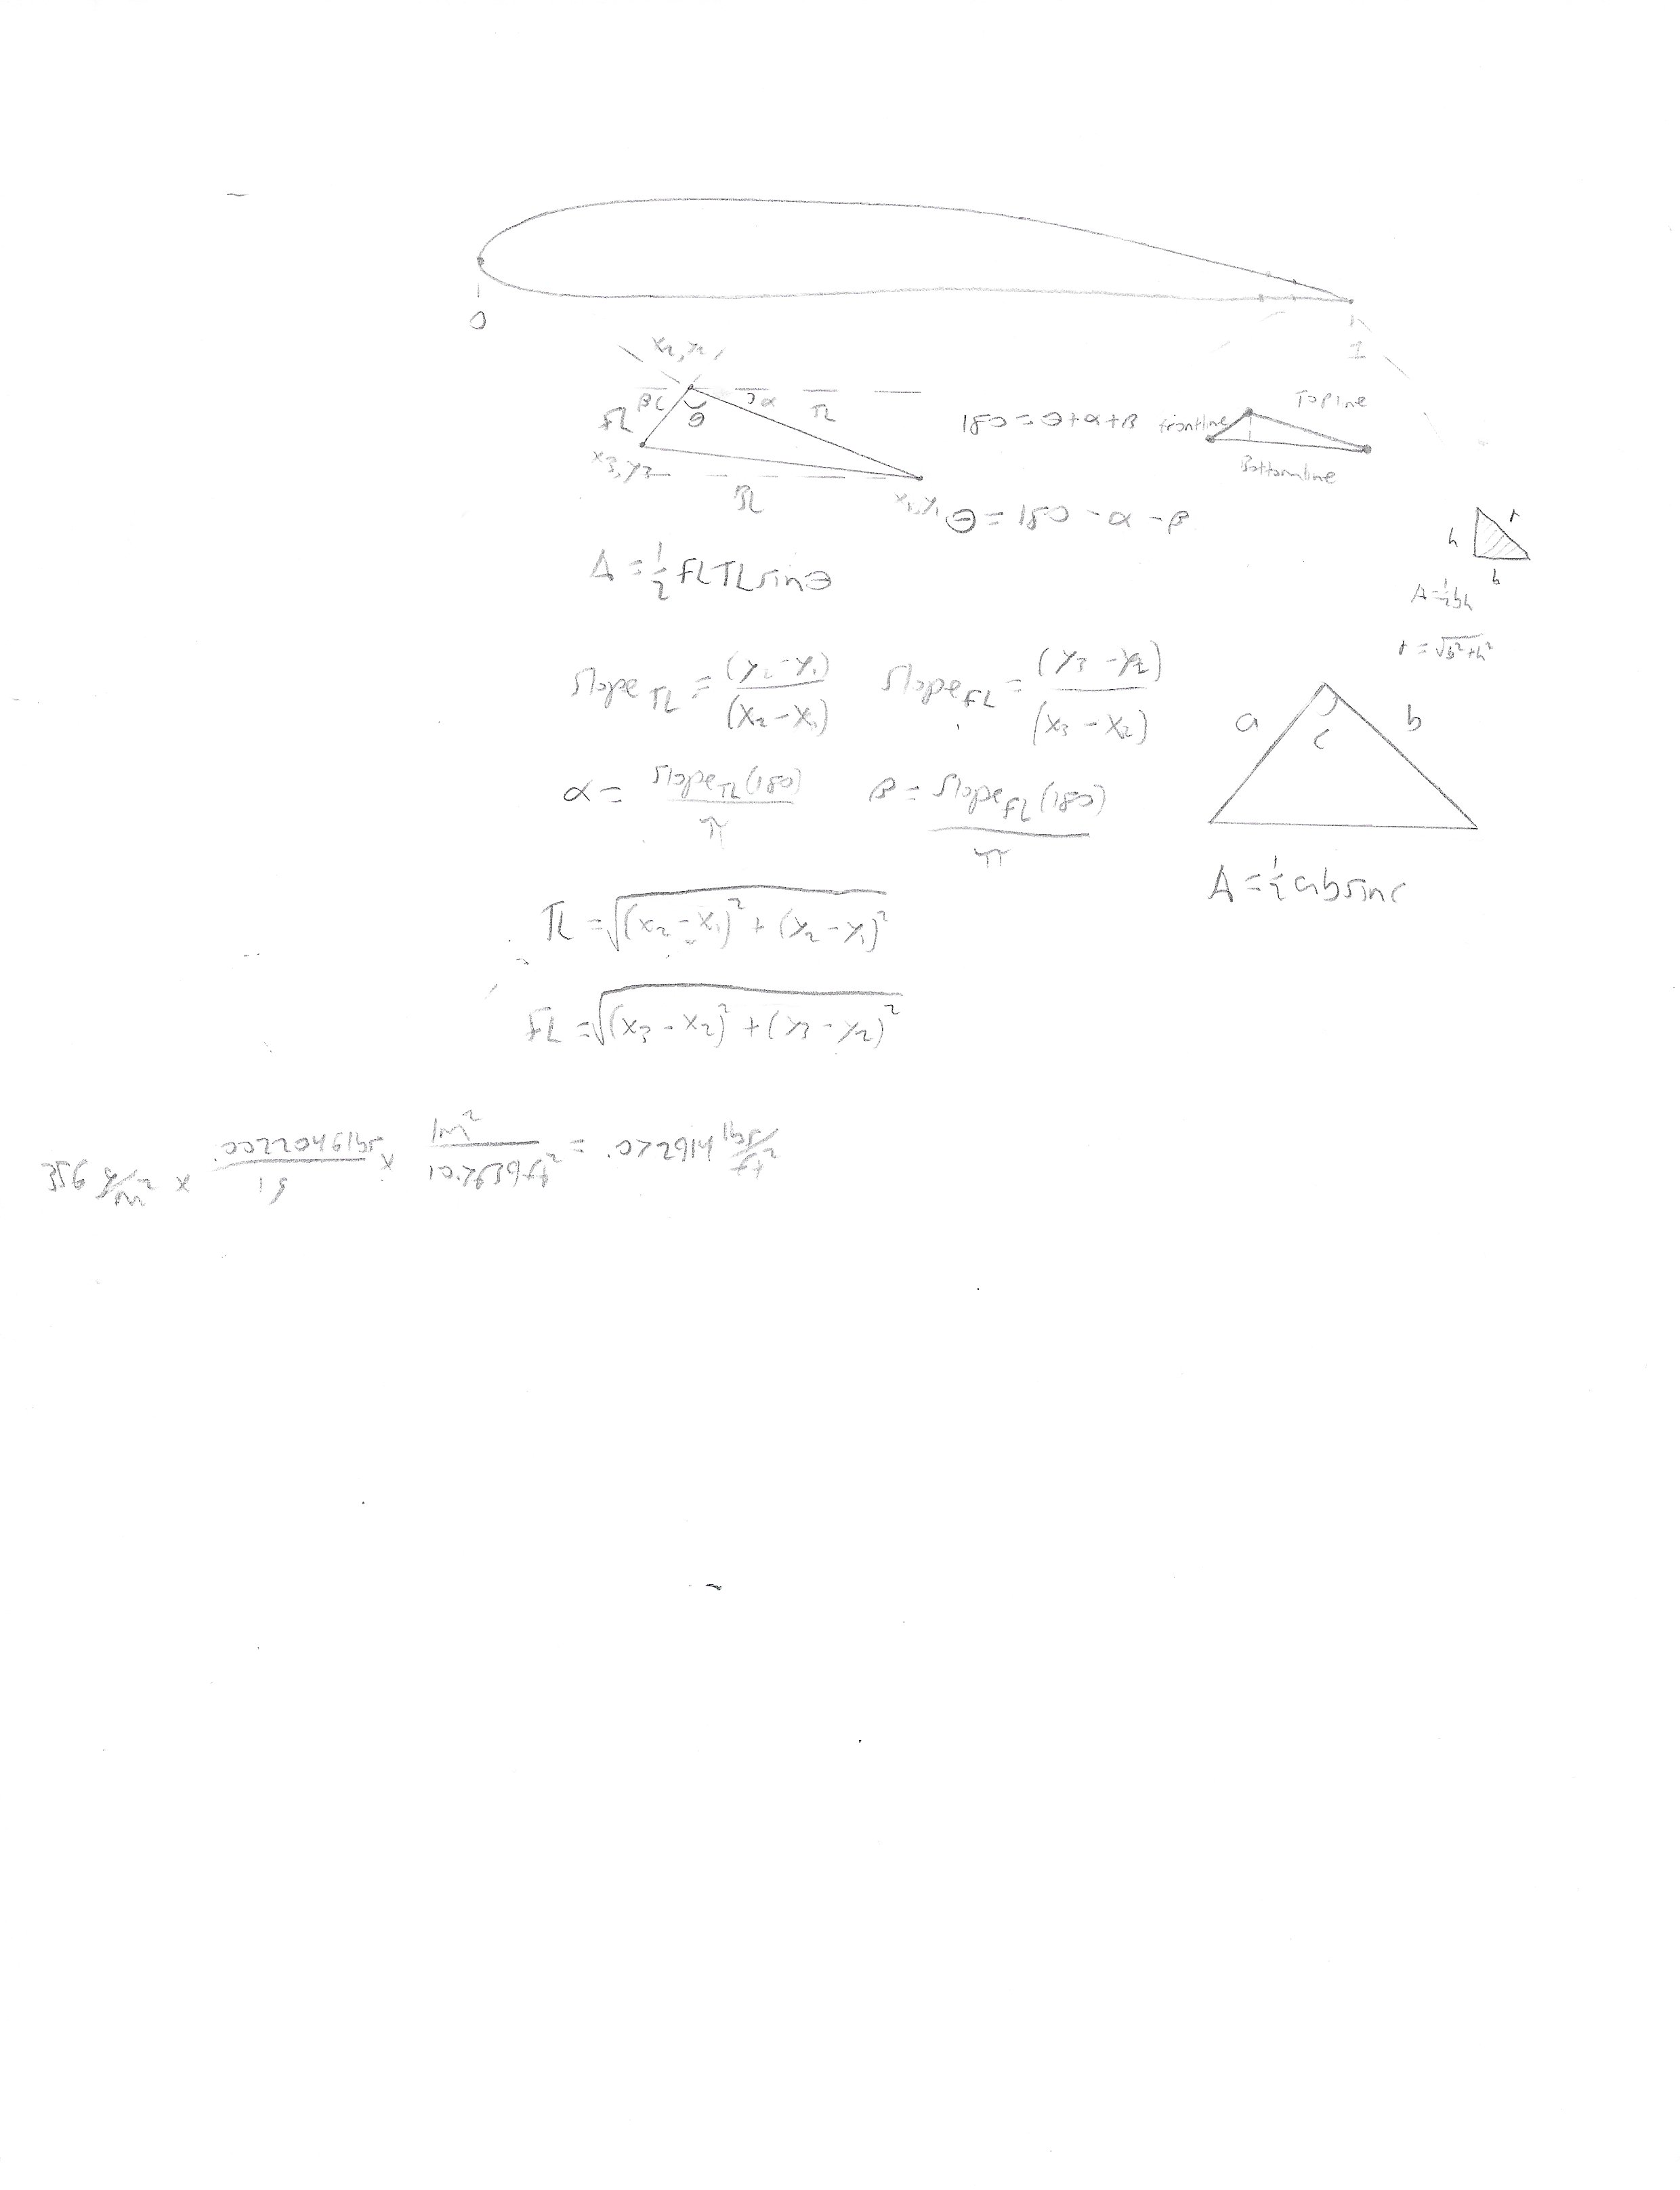 0
1
x₂, y₂
β
θ
α
TL
FL
x₃, y₃
BL
x₁, y₁
180 = θ + α + β
frontline
Topline
Bottomline
θ = 180 - α - β
h
r
b
A = ½bh
r = √(b² + h²)
A = ½ FL TL sinθ
slope_TL = (y₂ - y₁) / (x₂ - x₁)
slope_FL = (y₃ - y₂) / (x₃ - x₂)
a
b
c
α = slope_TL (180) / π
β = slope_FL (180) / π
A = ½ab sin c
TL = √((x₂ - x₁)² + (y₂ - y₁)²)
FL = √((x₃ - x₂)² + (y₃ - y₂)²)
356 g/m² × .0022046 lbs / 1g × 1m² / 10.7639 ft² = .072914 lbs/ft²